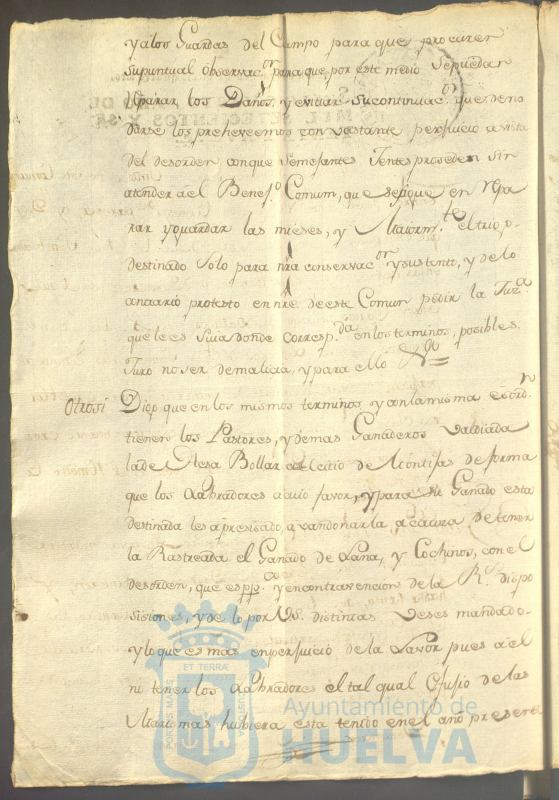 y alos Guardas del Campo para que procuren
supuntual observac.on para que por este medio sepuedan
Reparar los Daños, y evitar sucontinuac.on que deno
darse los prehevcemos con vastante perjuicio avista
del desorden conque Semejantes Jentes proceden Sin
atender a el Benef.o Comun, que se sigue en Repa
rar y guardar las mieses, y Maiorm.te el trigo,
destinado Solo para nra conservac.on y sustento, y delo
contrario protesto en nre de este Comun pedir la Juz.a
que le es Suia donde corresp.da en los terminos, posibles.
Juro no ser de malicia, y para ello V.o
Otrosi Digo que en los mismos terminos y con la misma
tienen los Pastores, y demas Ganaderos Valdiada
la de Mesa Bollar al citio de de forma
que los Labradores acuio favor, y para su Ganado esta
destinada les apresisado avandonarla acausa de tener
la Rastreada el Ganado de Lana, y Cochinos, con el
desorden, que es pp.co y encontravencion de la R.s dispo
sisiones, y de lo por VS. distintas veses mandado
y lo que es mas enperjuicio de la Lavor pues a el
ni tener los Labradores el tal qual refusio de las
Marismas hubiera esta tenido en el año presente
PORTUS MARIS
ET TERRÆ
CUSTODIA
Ayuntamiento de
HUELVA